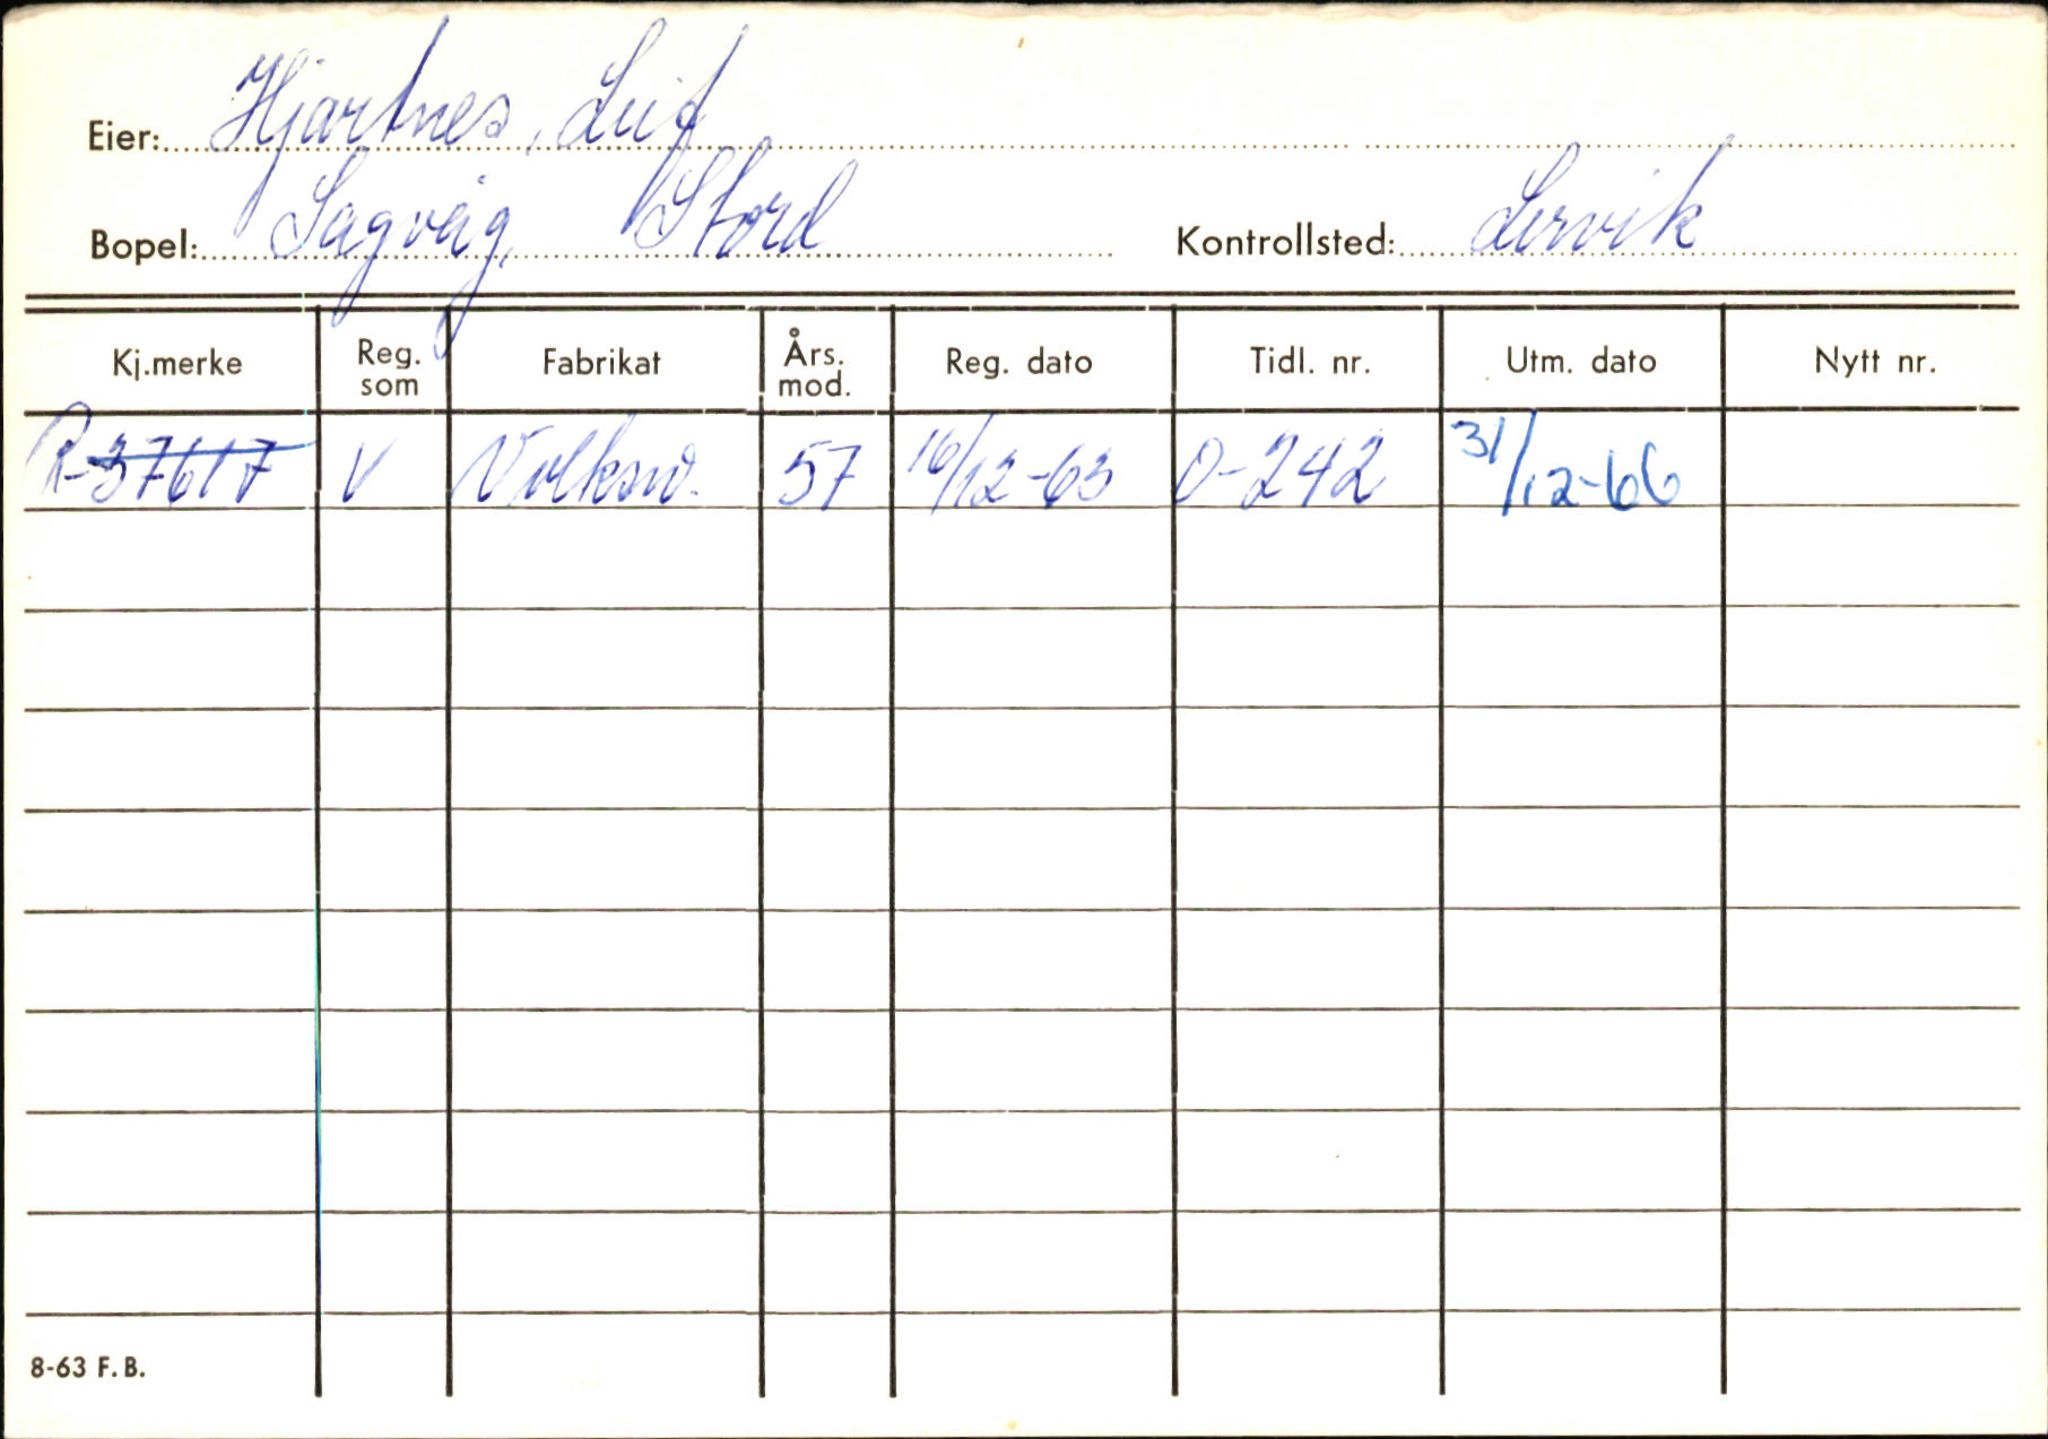 Eier: Hjartnes, Leif
Bopel: Sagvåg, Stord Kontrollsted: Lervik
Kj.merke Reg. som Fabrikat Års. mod. Reg. dato Tidl. nr. Utm. dato Nytt nr.
R-37617 V Volksw. 57 16/12-63 O-242 31/12-66
8-63 F.B.